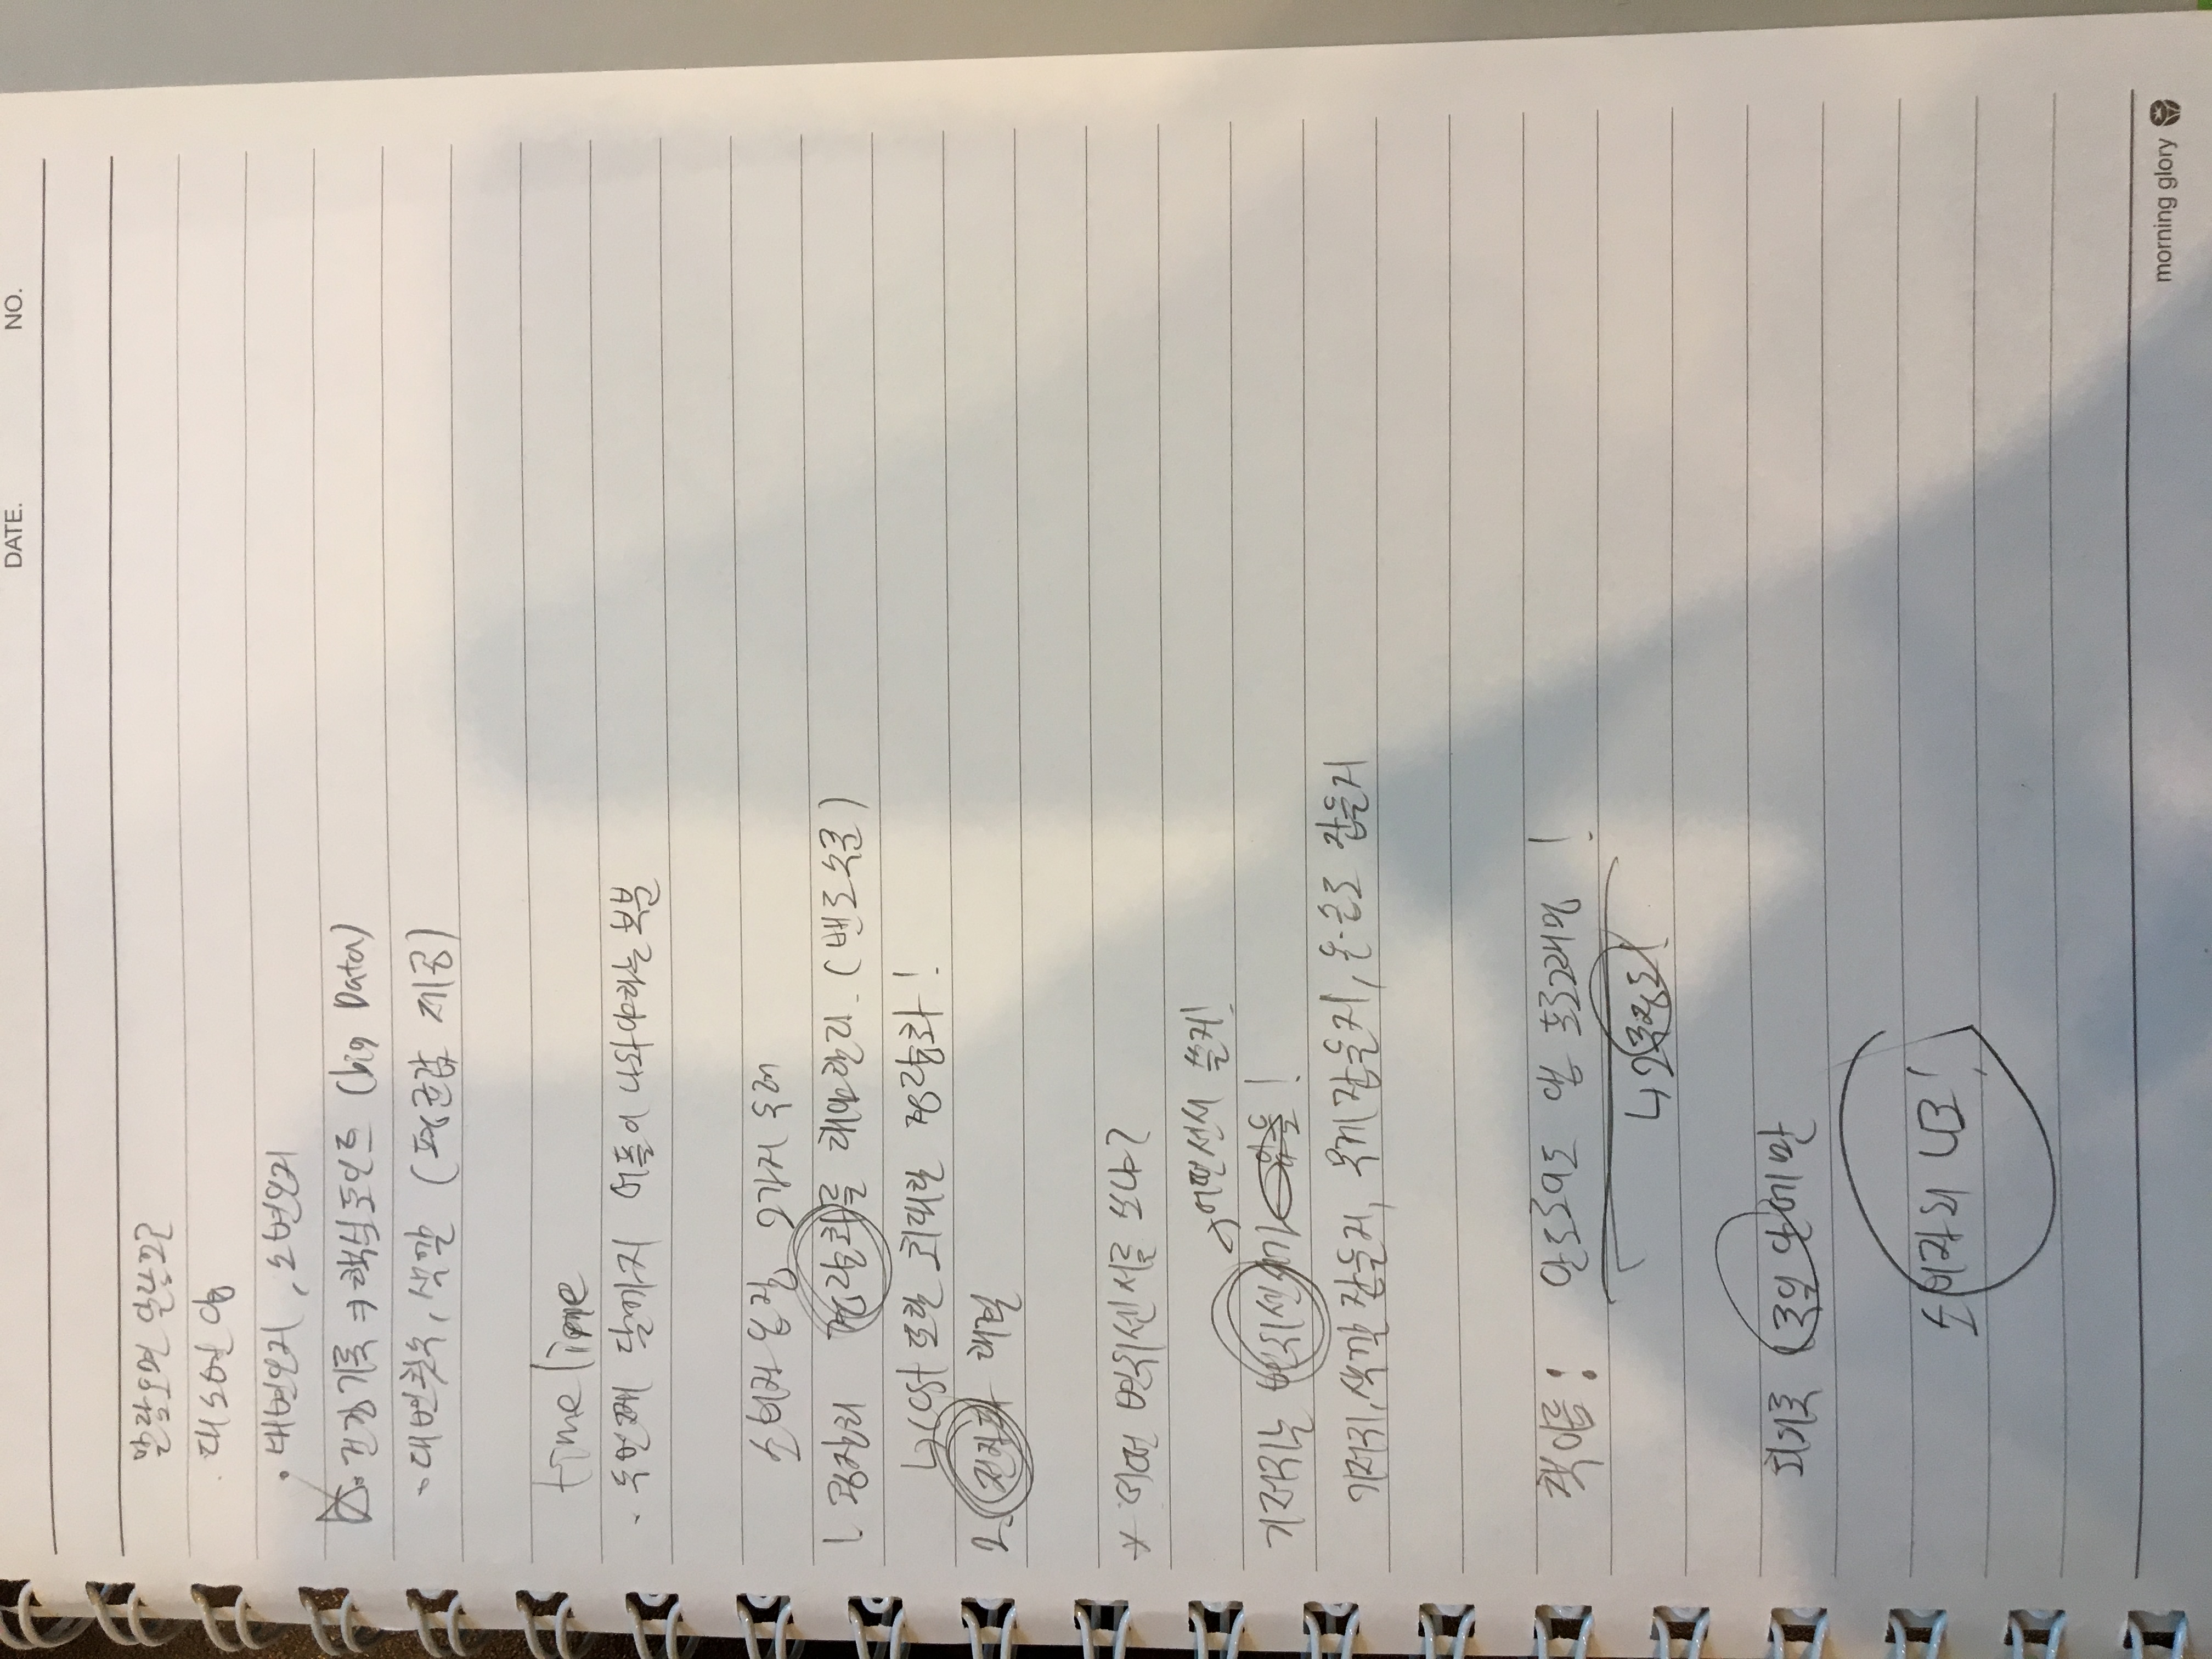 DATE. NO.
알람오면 알람끄고
· 대소변 양
· 대변인지, 소변인지
· 건강기록 → 핵심포인트 (big Data)
· 대변횟수, 색깔 (평균값 제공)
timeline
· 두번째 달까지 어플이 나와야하는 부분
소비자 입장 2가지
1. 굉장히 경량화를 해야한다. (밴드수준)
↳ cost 또한 최대한 경량화!
2. 전자파 해결
* 어떤 변위센서를 쓰냐?
→ 어떤센서 쓸지!
기저귀는 변위센서가
기저귀, 색깔 잡을지, 무게 잡을지, 온·습도 잡을지
책이름: 안드로이드 앱 프로그래밍!
↳ 2주정도!
최기록 1주일 안에만
소비자의 니즈!
morning glory